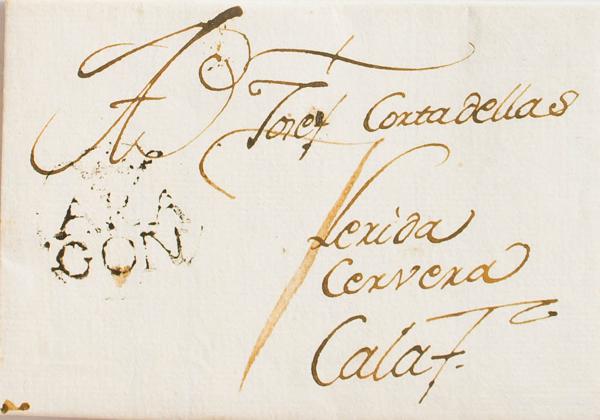 A D Josef Cortadellas
ARA
GON
Lerida
Cervera
Calaf.